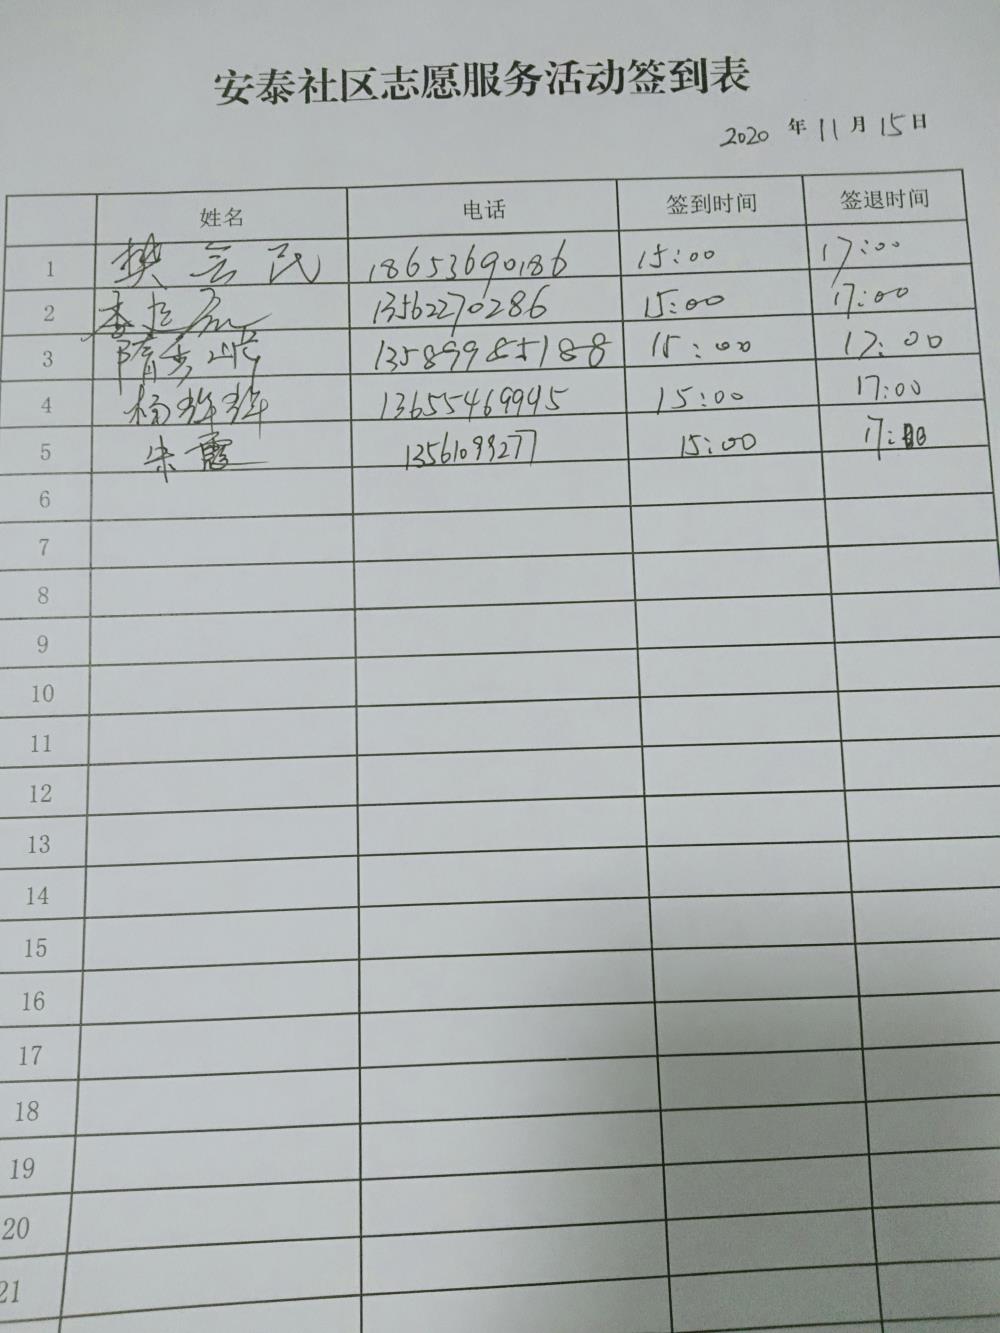 安泰社区志愿服务活动签到表
2020 年 11 月 15 日
姓名 电话 签到时间 签退时间
1 樊会民 18653690186 15:00 17:00
2 13562270286 15:00 17:00
3 13589985188 15:00 17:00
4 杨 13655469945 15:00 17:00
5 朱霞 13561099277 15:00 17:00
6
7
8
9
10
11
12
13
14
15
16
17
18
19
20
21